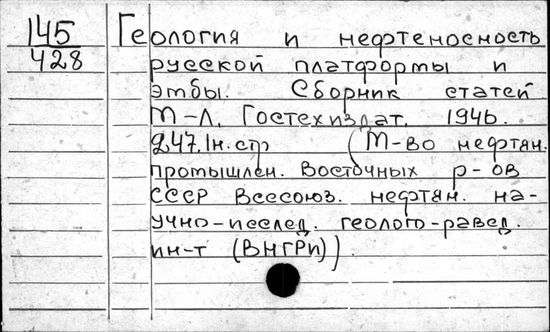 145 Геология и нефтеносность
428 русской платформы и
эмбы. Сборник статей
М-Л. Гостехиздат. 1946.
247.1н.стр (М-во нефтян.
промышлен. Восточных р-ов
СССР Всесоюз. нефтян. на-
учно-исслед. геолого-развед.
ин-т (ВНГРИ)).